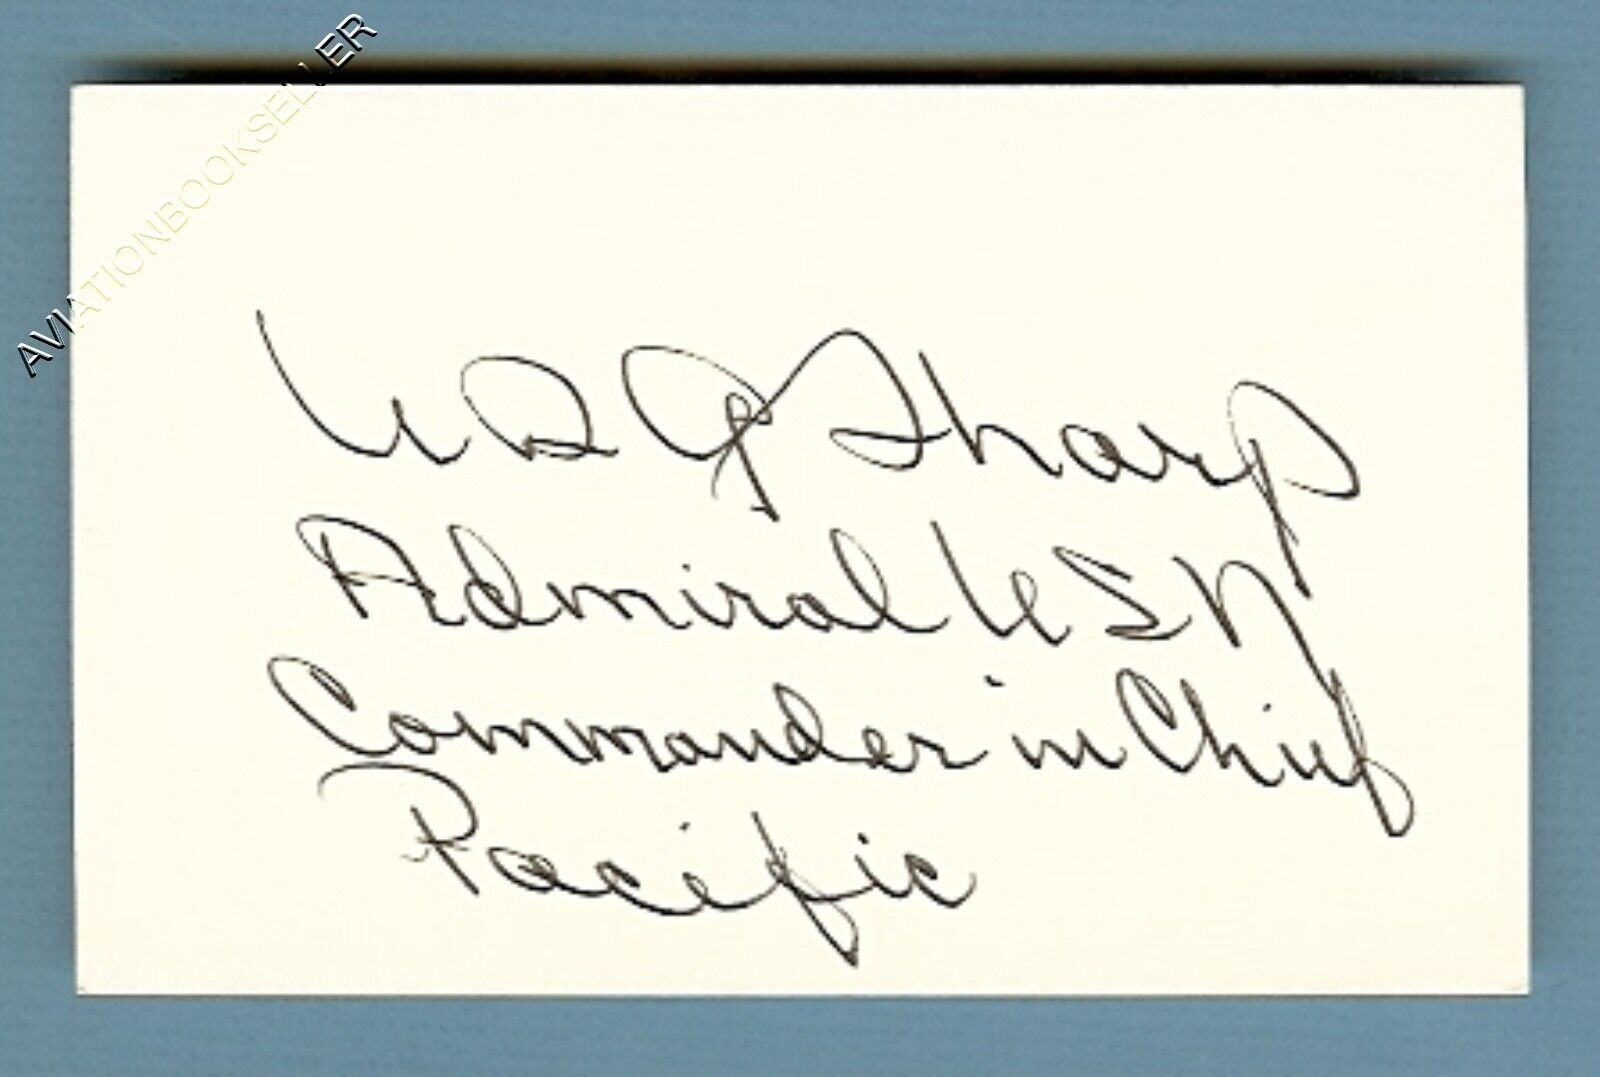 AVIATIONBOOKSELLER
U S G Sharp
Admiral USN
Commander in Chief
Pacific